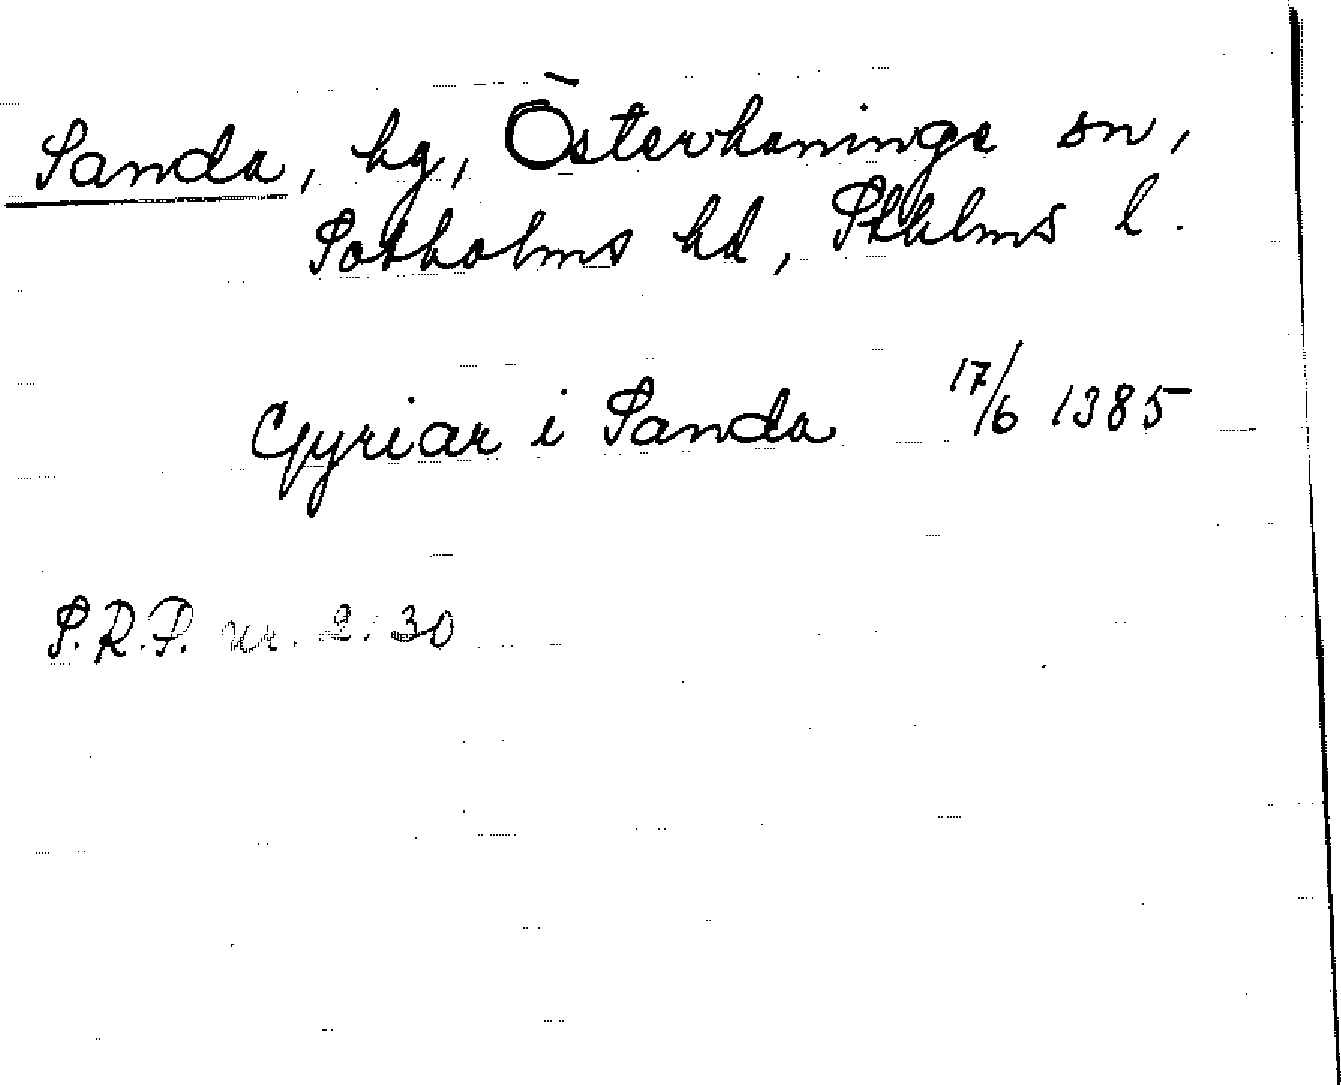 Sanda, hg, Österhaninge sn,
Sotholms hd, Sthlms l.
Gyriar i Sanda 17/6 1385
S.R.P. nr. 2130